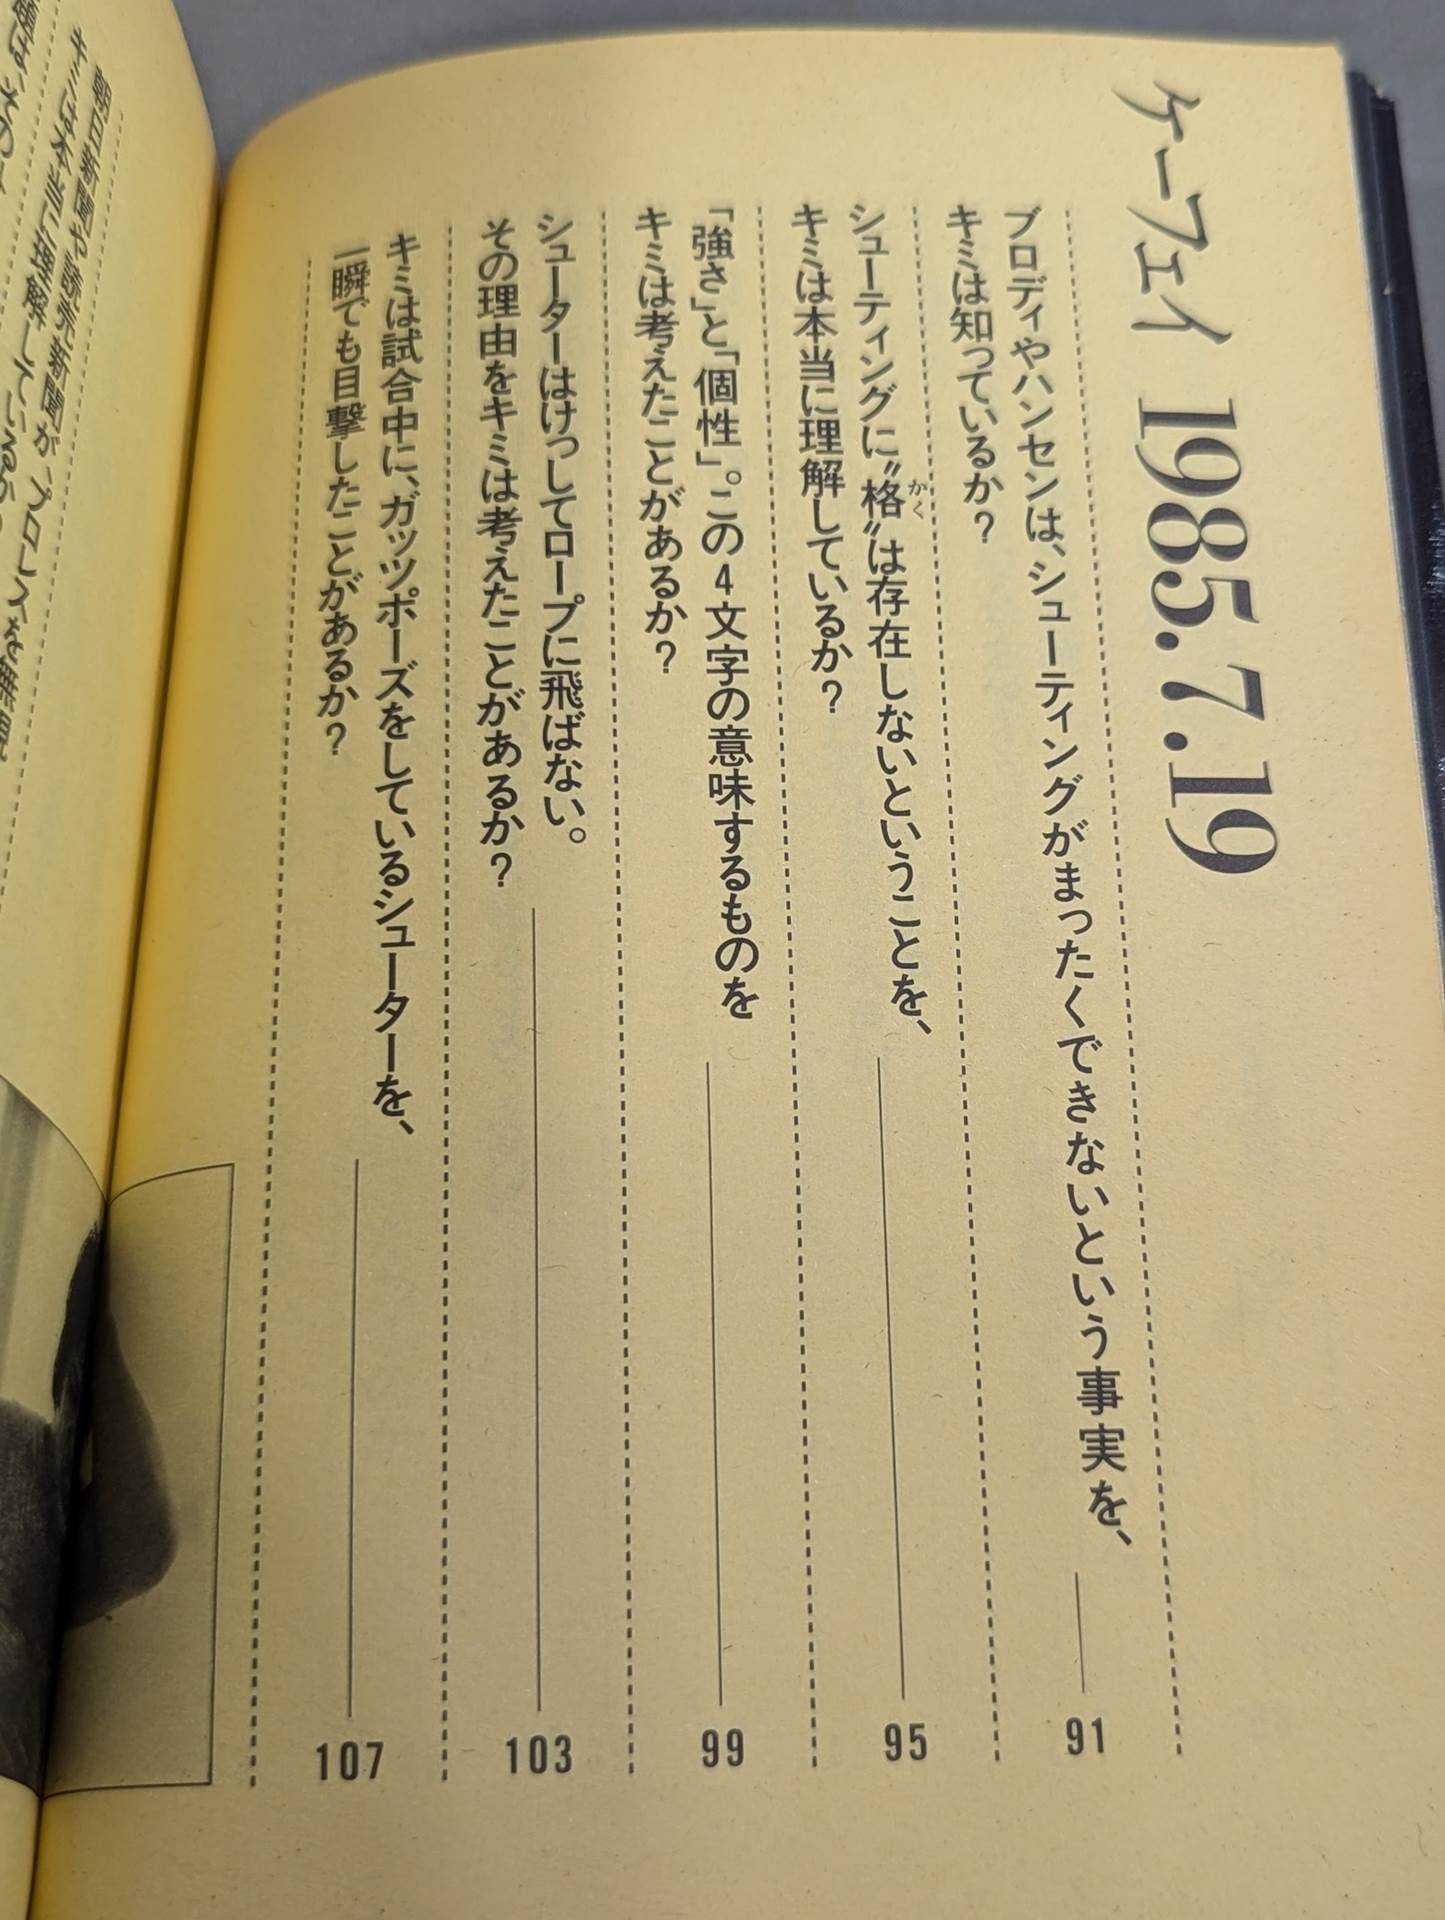 ケーフェイ 1985.7.19
ブロディやハンセンは、シューティングがまったくできないという事実を、
キミは知っているか？
91
シューティングに〝格〟は存在しないということを、
かく
キミは本当に理解しているか？
95
「強さ」と「個性」。この4文字の意味するものを
キミは考えたことがあるか？
99
シューターはけっしてロープに飛ばない。
その理由をキミは考えたことがあるか？
103
キミは試合中に、ガッツポーズをしているシューターを、
一瞬でも目撃したことがあるか？
107
朝日新聞や読売新聞が、プロレスを無視
キミは本当に理解しているか